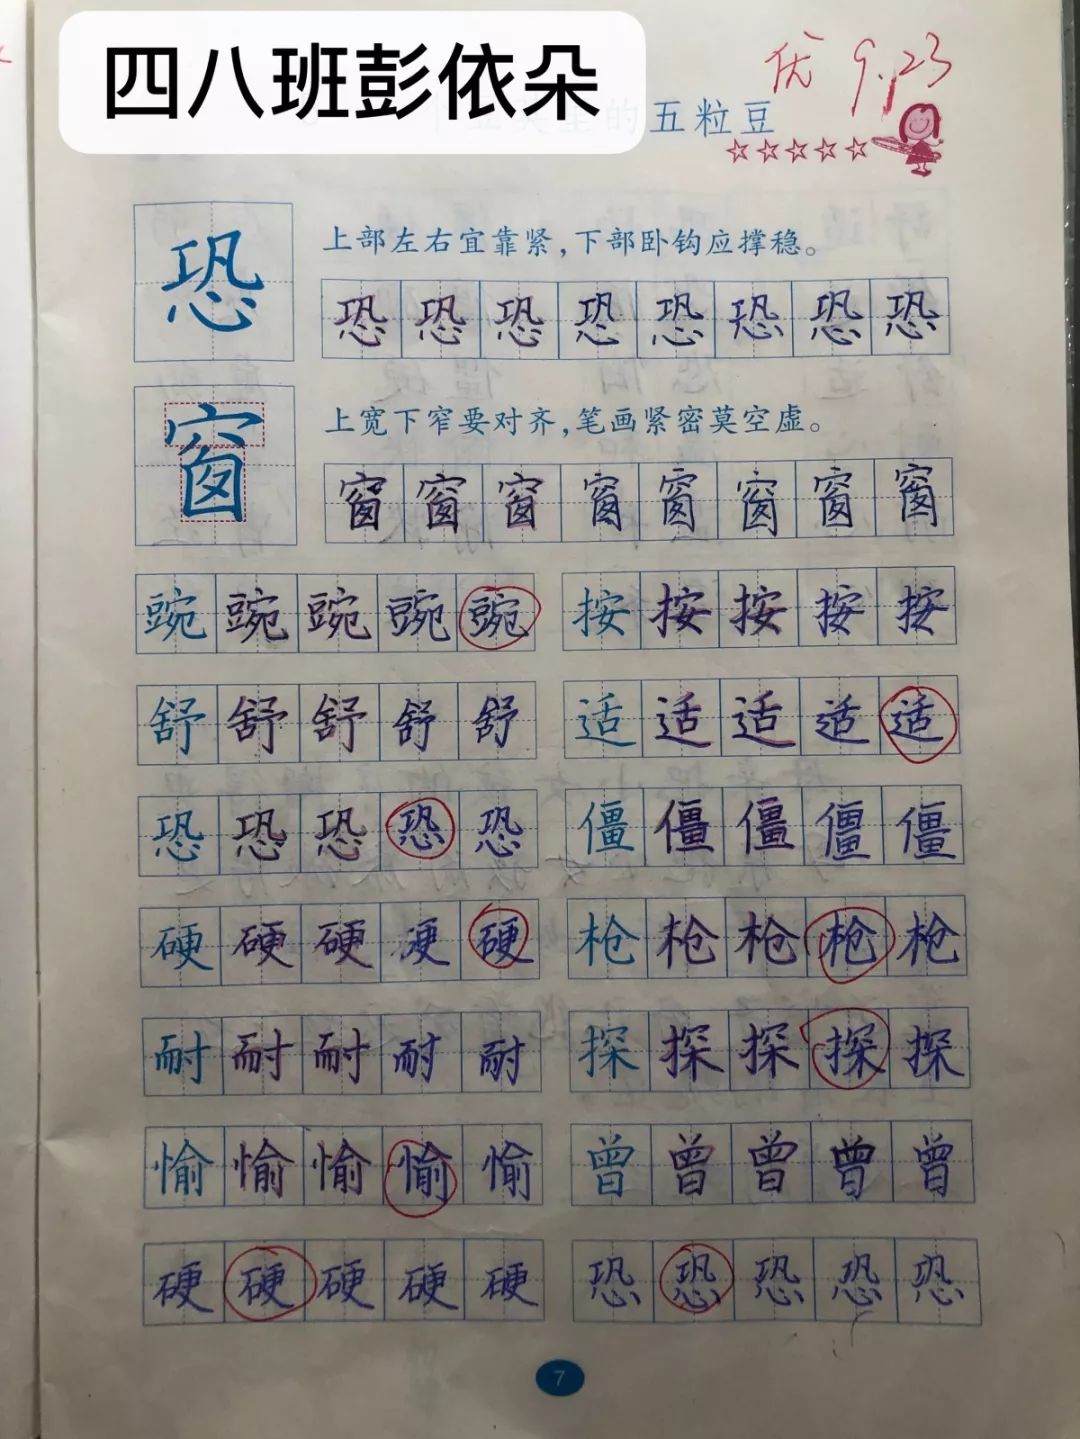 四八班彭依朵
优 9.23
的五粒豆
☆☆☆☆☆
恐
上部左右宜靠紧,下部卧钩应撑稳。
恐 恐 恐 恐 恐 恐 恐 恐
窗
上宽下窄要对齐,笔画紧密莫空虚。
窗 窗 窗 窗 窗 窗 窗 窗
豌 豌 豌 豌 豌 按 按 按 按 按
舒 舒 舒 舒 舒 适 适 适 适 适
恐 恐 恐 恐 恐 僵 僵 僵 僵 僵
硬 硬 硬 硬 硬 枪 枪 枪 枪 枪
耐 耐 耐 耐 耐 探 探 探 探 探
愉 愉 愉 愉 愉 曾 曾 曾 曾 曾
硬 硬 硬 硬 硬 恐 恐 恐 恐 恐
7